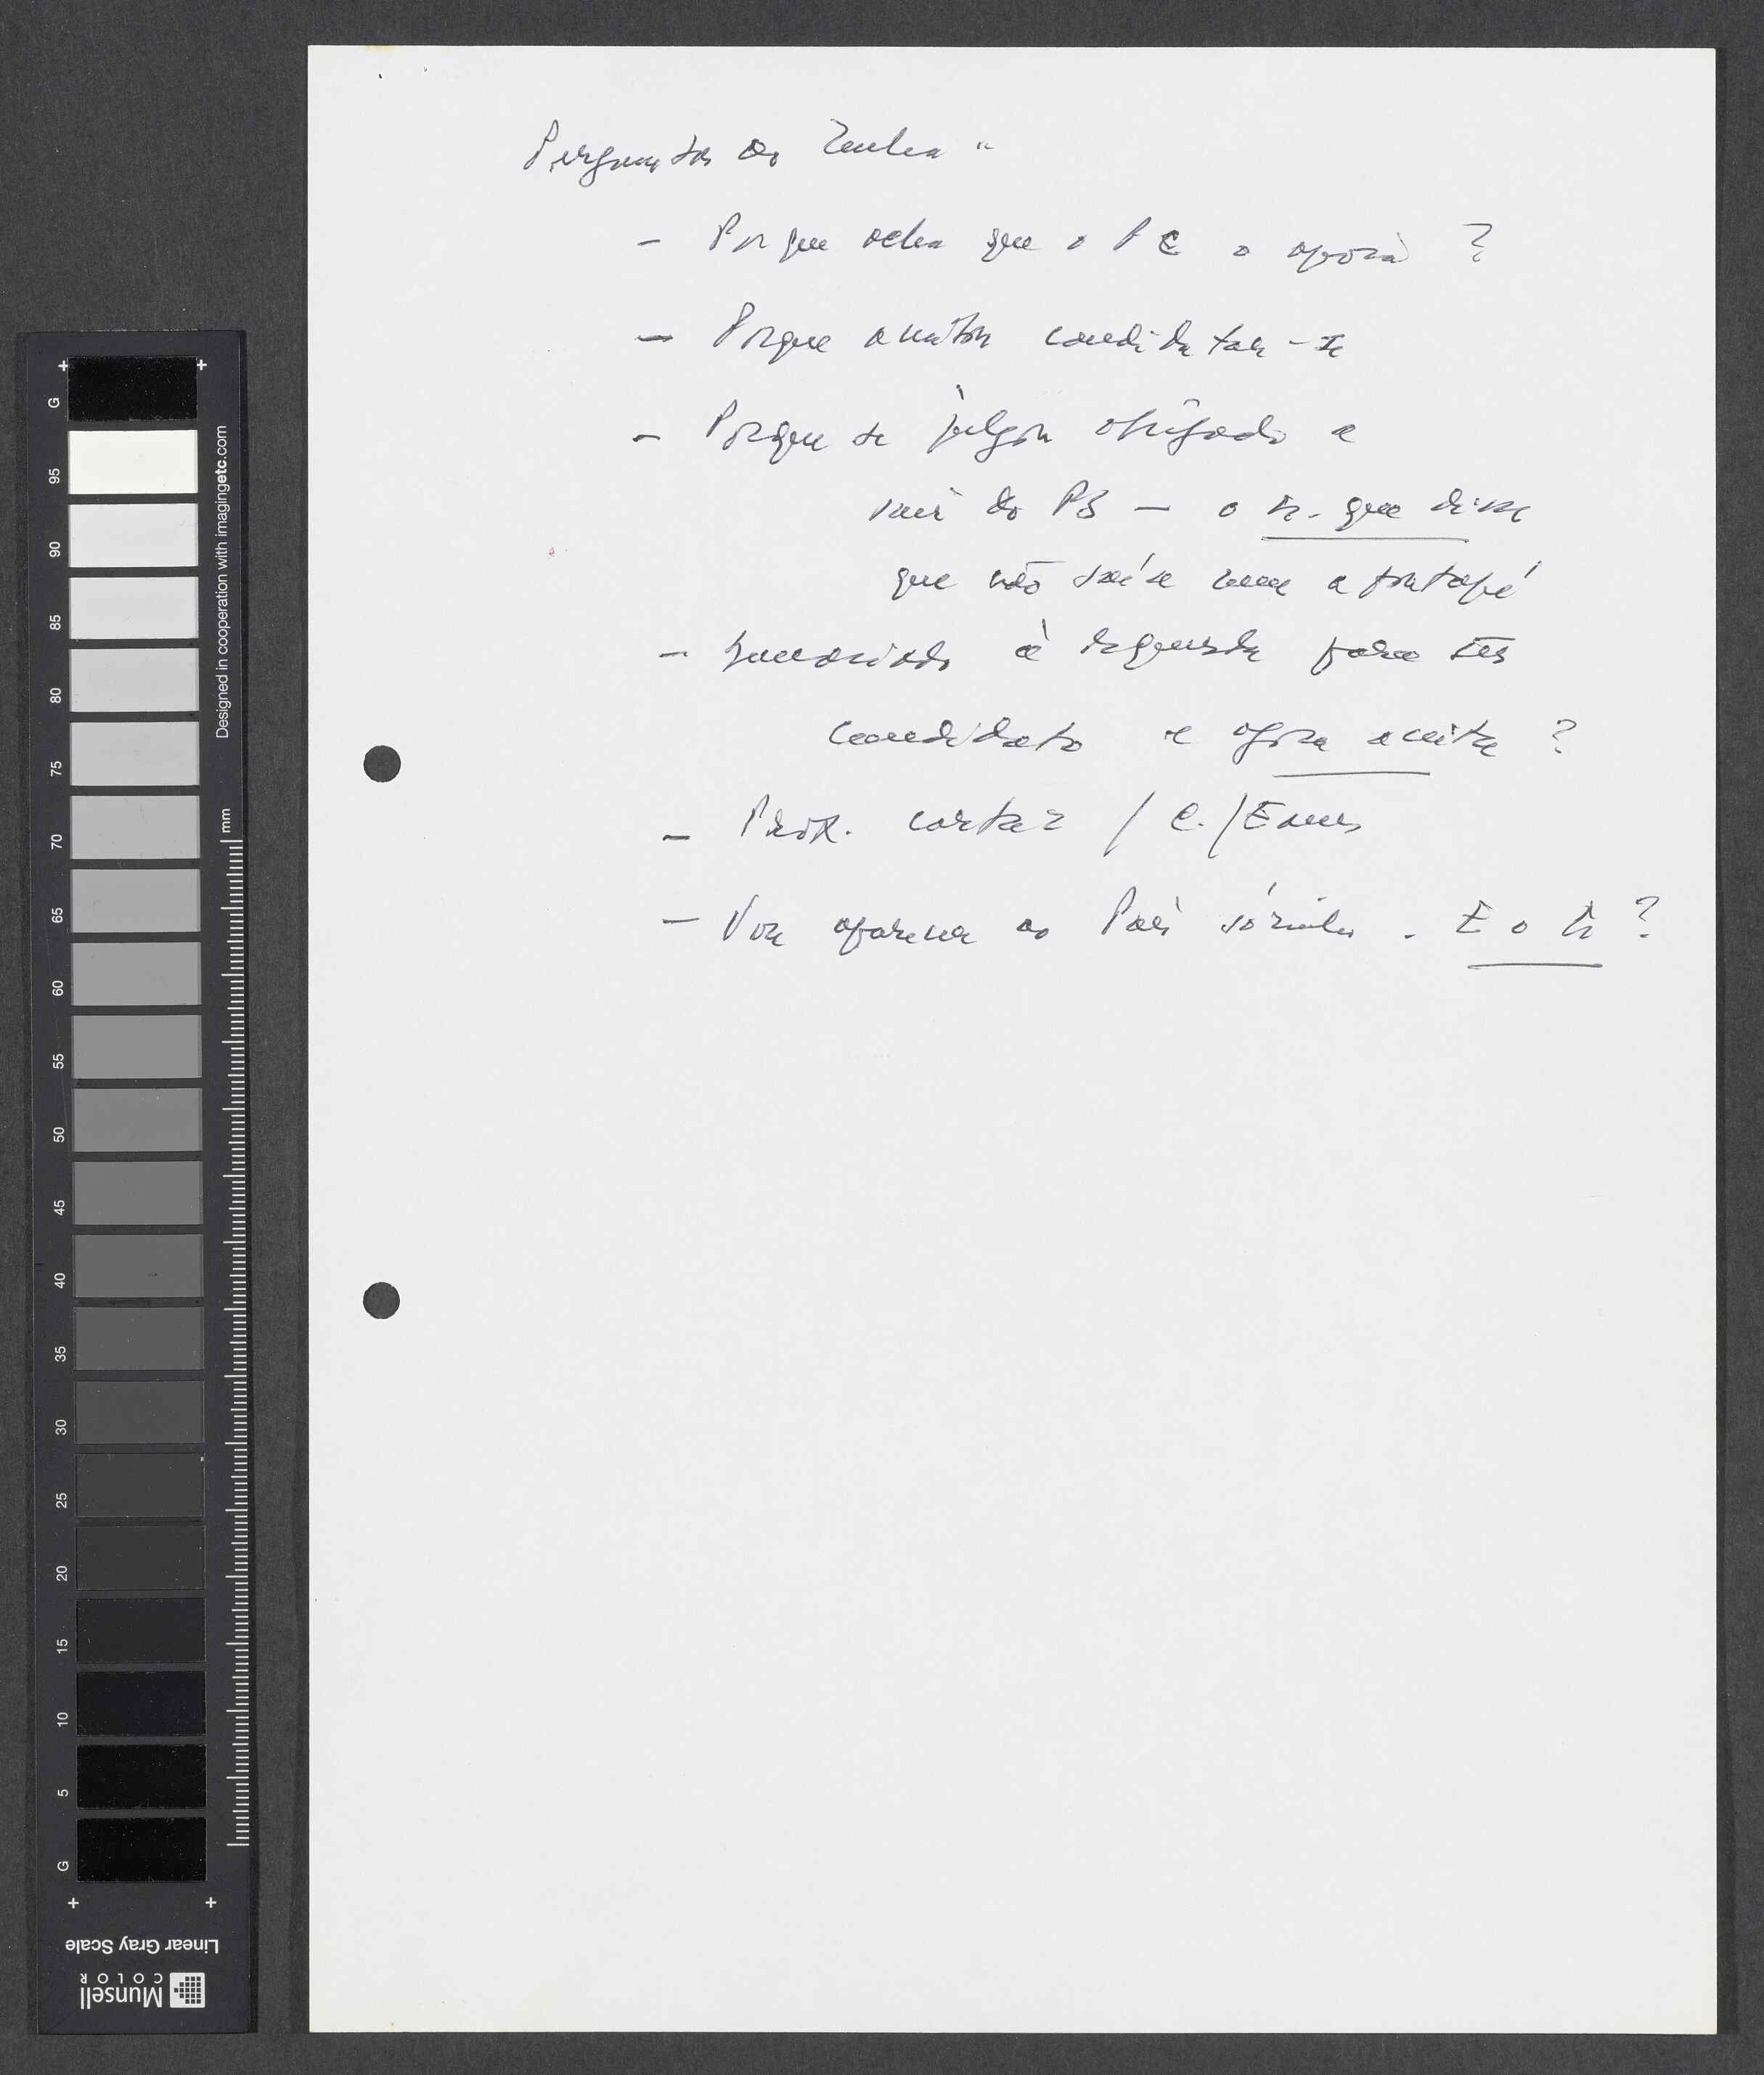 Perguntas ao Zenha "
- Porque acha que o PC o apoia ?
- Porque aceitou candidatar-se
- Porque se julgou obrigado a
sair do PS — o sr. que disse
que não saía nem a pontapé
- à segunda para ser
candidato e agora aceita ?
- cortar / C./Eanes
- Vou aparecer ao País sózinho. E o Sr ?
G
95
90
85
80
75
70
65
60
55
50
45
40
35
30
25
20
15
10
5
G
mm
Designed in cooperation with imagingetc.com
Linear Gray Scale
Munsell
COLOR